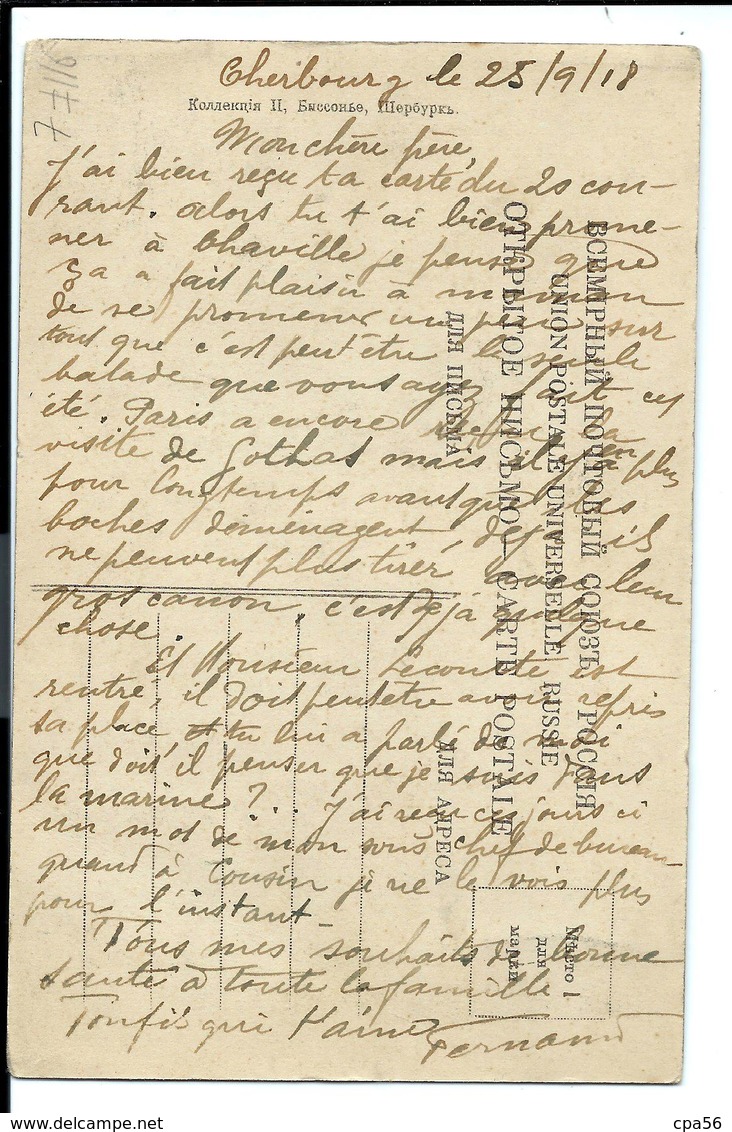 77116
Cherbourg le 25/9/18
Коллекція II, Биссонье, Шербургъ.
Mon chère père,
J'ai bien reçu ta carte du 20 cou-
rant. Alors tu t'ai bien prome-
ner à Chaville je pense que
ça a fait plaisir à maman
de se promener un peu sur
tout que c'est peut être la seule
balade que vous ayez fait cet
été. Paris a encore reçu la
visite de Gothas mais il y en a plus
pour longtemps avant que les
boches déménagent, déjà ils
ne peuvent plus tirer avec leur
gros canon, c'est déjà quelque
chose.
Et Monsieur Lecomte est
rentré, il doit peutetre avoir repris
sa place et tu lui a parlé de moi
que doit il penser que je suis dans
la marine? ... J'ai reçu ces jours ci
un mot de mon sous chef de bureau
quand à Cousin je ne le vois plus
pour l'instant
Tous mes souhaits de bonne
santé à toute la famille
Ton fils qui t'aime Fernand
ВСЕМІРНЫЙ ПОЧТОВЫЙ СОЮЗЪ РОССІЯ
UNION POSTALE UNIVERSELLE RUSSIE
ОТКРЫТОЕ ПИСЬМО — CARTE POSTALE
ДЛЯ ПИСЬМА
ДЛЯ АДРЕСА
Мѣсто
для
марки
www.delcampe.net
cpa56